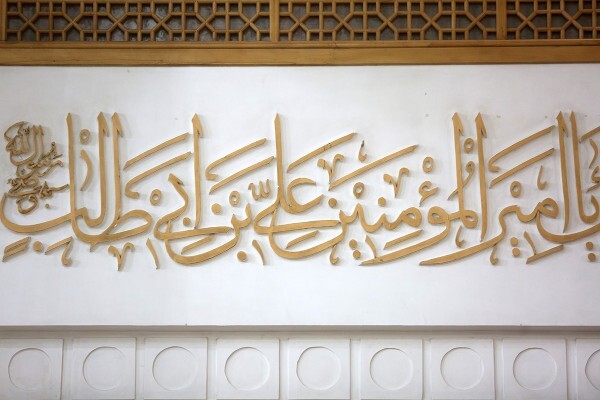 يا أمير المؤمنين علي بن أبي طالب